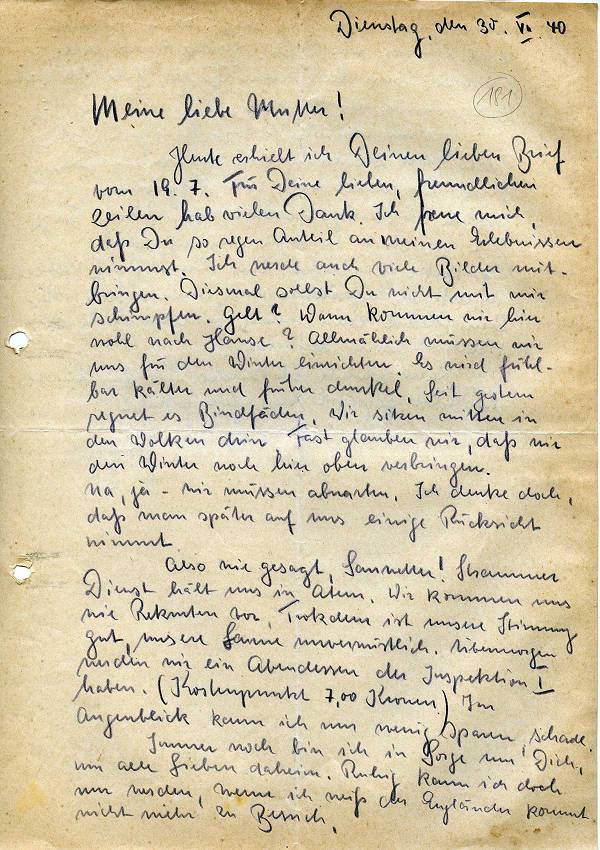 Dienstag, den 30. VII. 40
181
Meine liebe Mutter!
Heute erhielt ich Deinen lieben Brief
vom 19.7. Für Deine lieben, freundlichen
Zeilen hab vielen Dank. Ich freue mich,
daß Du so regen Anteil an meinen Erlebnissen
nimmst. Ich werde auch viele Bilder mit-
bringen. Diesmal sollst Du nicht mit mir
schimpfen. Gelt? Wann kommen wir hier
wohl nach Hause? Allmählich müssen wir
uns für den Winter einrichten. Es wird fühl-
bar kälter und früher dunkel. Seit gestern
regnet es Bindfäden. Wir sitzen mitten in
den Wolken drin. Fast glauben wir, daß wir
den Winter noch hier oben verbringen.
Na, ja - wir müssen abwarten. Ich denke doch,
daß man später auf uns einige Rücksicht
nimmt
Also wie gesagt, Strammer
Dienst hält uns in Atem. Wir kommen uns
wie Rekruten vor. Trotzdem ist unsere Stimmung
gut, unsere Laune unverwüstlich. Übermorgen
werden wir ein Abendessen der Inspektion I
haben. (Kostenpunkt 7,00 Kronen) Im
Augenblick kann ich nur wenig sparen, schade.
Immer noch bin ich in Sorge um Dich,
um alle Lieben daheim. Ruhig kann ich doch
nur werden, wenn ich weiß der Engländer kommt
nicht mehr zu Besuch.